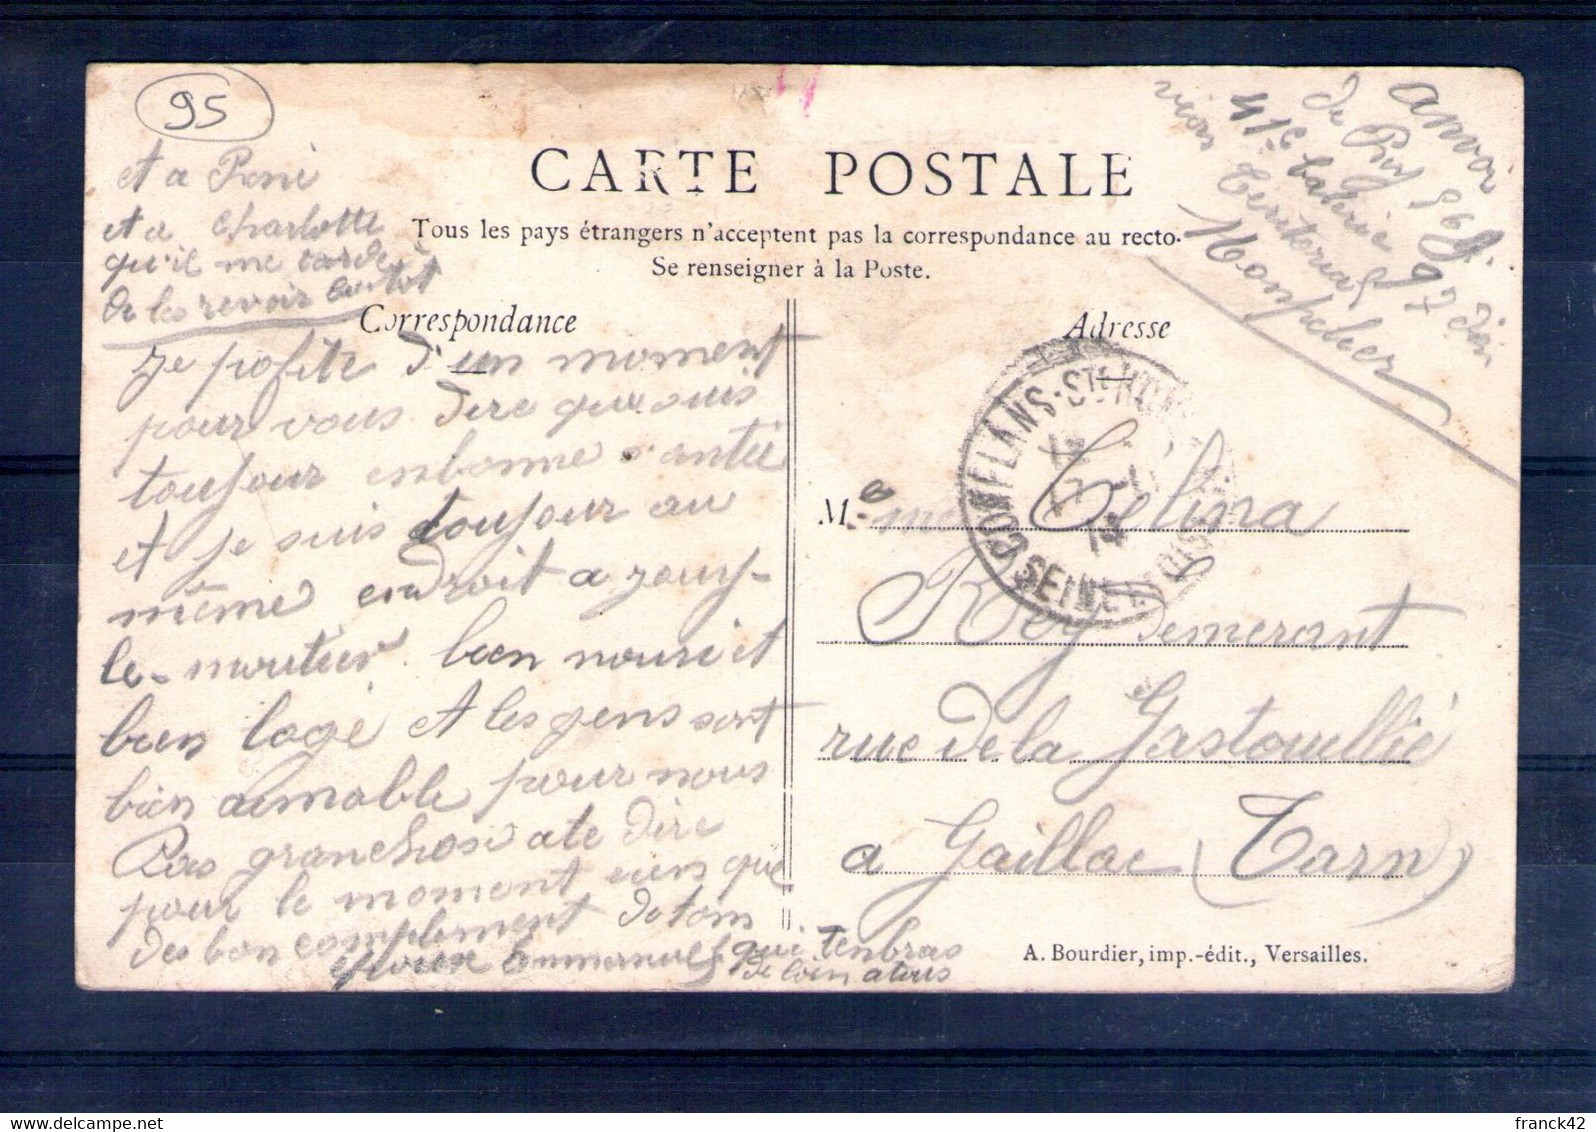 95
et a René
et a Charlotte
qu'il me tarde
de les revoir
CARTE POSTALE
Tous les pays étrangers n'acceptent pas la correspondance au recto.
Se renseigner à la Poste.
Correspondance
Je pofite d'un moment
pour vous dire que suis
toujour enbonne santée
et je suis toujour au
même endroit a jouy-
le-moutier bien nouri et
bien logé et les gens sont
bien aimable pour nous
Pas granchose ate dire
pour le moment rien que
des bon complement de ton
époux Emmanuel qui tenbras
de loin atous
anvoi
de Rey
41e baterie 97 Divi
vion Teritorial
Monpelier
Adresse
CONFLANS-STE HONORINE
SEINE ET OISE
14
M me Célina
Rey demerant
rue de la Gastouillié
a Gaillac (Tarn)
A. Bourdier, imp.-édit., Versailles.
delcampe.net
franck42